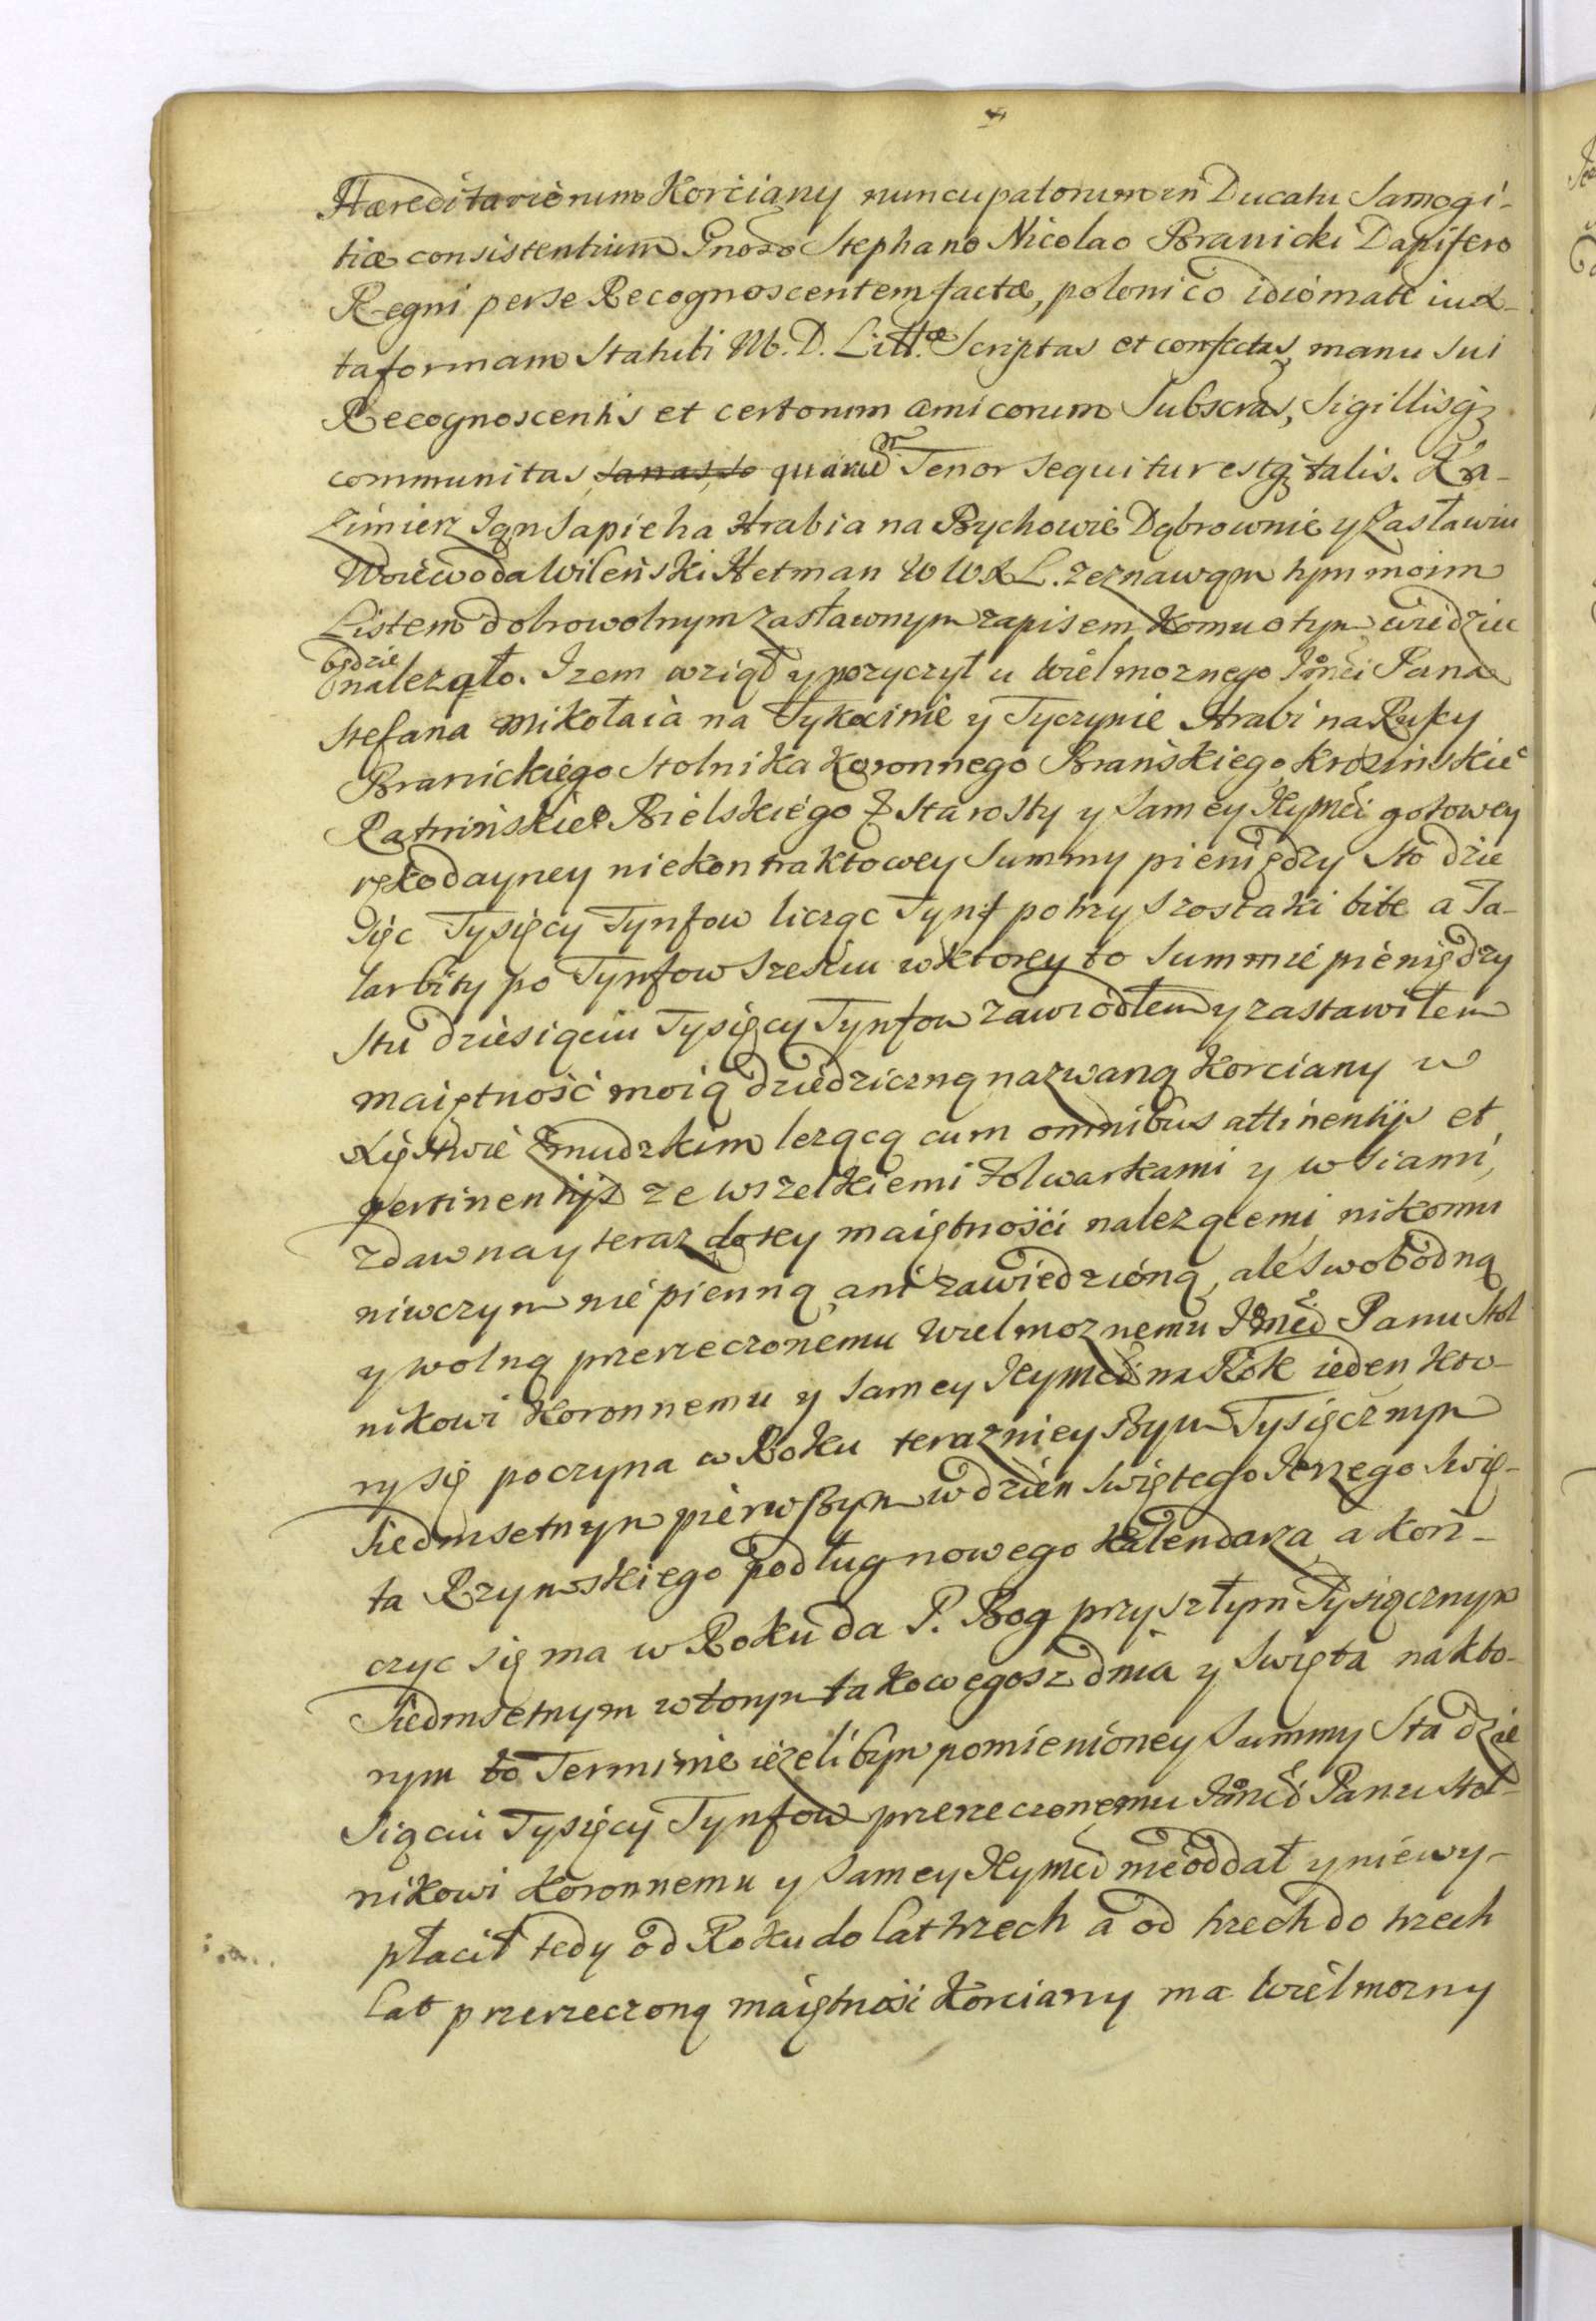 Hæreditariorum Korciany nuncupatorum in Ducatu Samogi-
tiæ consistentium Gnoso Stephano Nicolao Branicki Dapifero
Regni per se Recognoscentem factæ, polonico idiomate iux-
ta formam Statuti M. D. Litt.æ Scriptas et confectas, manu sui
Recognoscentis et certorum amicorum Subscras, Sigillisq3
communitas, sanas, so quarud Tenor sequitur estq3 talis. Ka-
zimierz Iąn Sapieha Hrabia na Bychowie Dąbrownie y Zasławiu
Woiewoda Wileński Hetman W W X L. zeznawąm tym moim
Listem dobrowolnym zastawnym zapisem, Komu o tym wiedziec
będzie
nalezało. Izem wziął y pozyczył u Wielmoznego Jmci Pana
Stefana Mikołaia na Tykocinie y Tyczynie Hrabi na Ruscy
Branickiego Stolnika Koronnego Brańskiego Krosinskie°
Ratnińskie° Bielskiego & Starosty y Samey Jeymci gotowey
rękodayney niekontraktowey Summy pieniędzy Sto dzie
sięc Tysięcy Tynfow licząc Tynf po trzy Szostaki bite a Ta-
lar bity po Tynfow Szesciu w ktorey to Summie pieniędzy
Stu dziesiąciu Tysięcy Tynfow zawiodłem y zastawiłem
maiętność moią dziedziczną nazwaną Korciany w
Xięstwie Zmudzkim lezącą cum omnibus attinentijs et
pertinentijs ze wszelkiemi Folwarkami y wsiami,
zdawna y teraz do tey maiętności nalezącemi, nikomu
niwczym nie pienną, ani zawiedzioną, ale swobodną
y wolną przerzeczonemu Wielmoznemu Jmci Panu Stol
nikowi Koronnemu y Samey Jeymci na Rok ieden kto-
ry się poczyna w Roku terazniey szym Tysięcznym
Siedmsetnym pierwszym w dzien Swiętego Jerzego Swię-
ta Rzymskiego podług nowego Kalendarza, a koń-
czyc się ma w Roku da P. Bog przyszłym Tysiącznym
Siedmsetnym wtorym takowegosz dnia y Swięta na kto-
rym to Terminie iezelibym pomienioney Summy Sta dzie
siąciu Tysięcy Tynfow przerzeczonemu Jmci Panu Stol-
nikowi Koronnemu y Samey Jeymci nie oddał y nie wy-
płacił tedy od Roku do lat trzech a od trzech do trzech
lat przerzeczoną maiętnośc Korciany ma Wielmozny